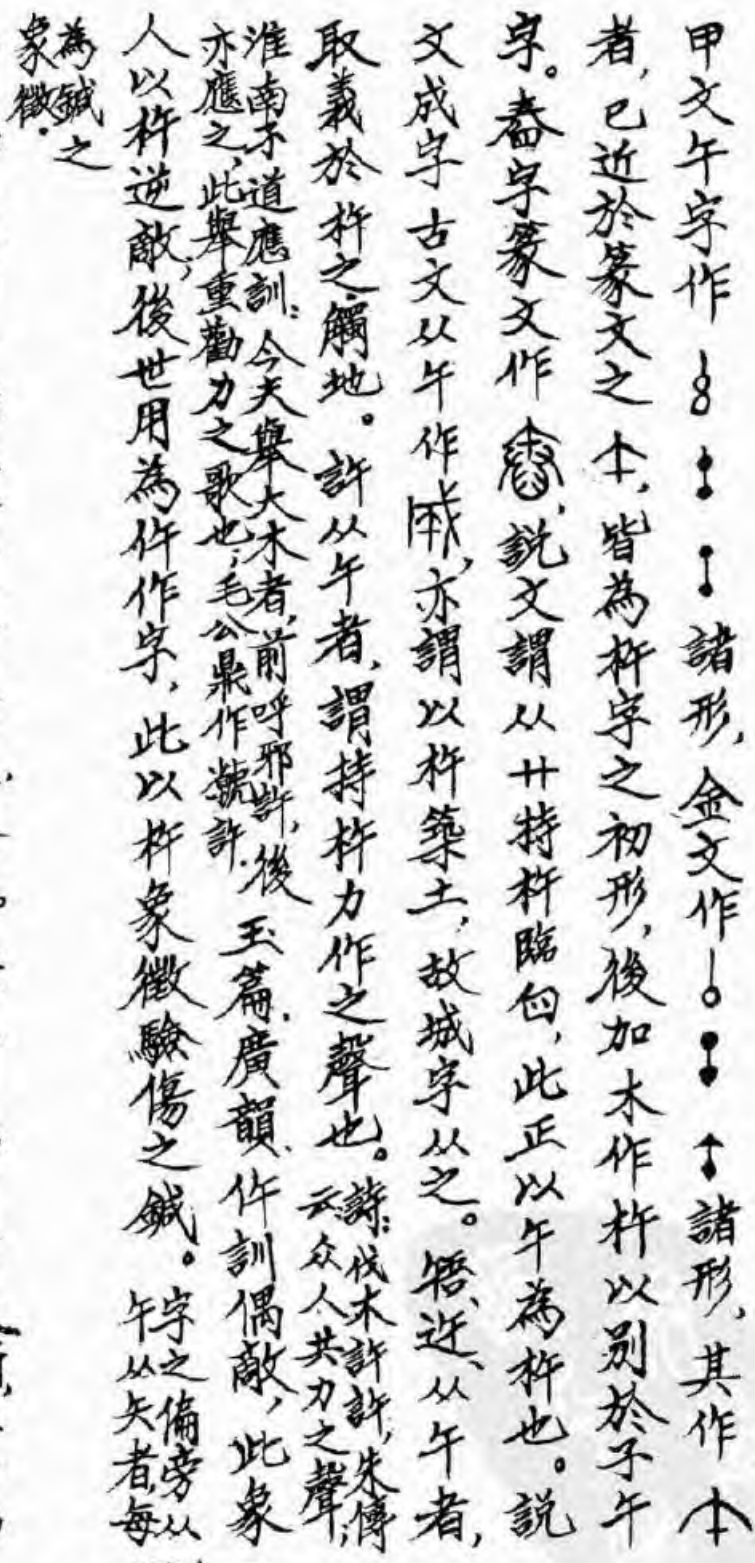 甲文午字作諸形，金文作諸形，其作
者，已近於篆文之，皆為杵字之初形，後加木作杵以別於子午
字。舂字篆文作，説文謂从廾持杵臨臼，此正以午為杵也。説
文成字古文从午作，亦謂以杵築土，故城字从之。啎、迕、从午者，
取義於杵之觸地。許从午者，謂持杵力作之聲也。詩：伐木許許，朱傳
云：众人共力之聲；
淮南子道應訓：今夫舉大木者，前呼邪許，後
亦應之，此舉重勸力之歌也；毛公鼎作虩許。
玉篇、廣韻、仵訓偶敵，此象
人以杵逆敵；後世用為仵作字，此以杵象徵驗傷之鍼。字之偏旁从
午从矢者，每
為鍼之
象徵。